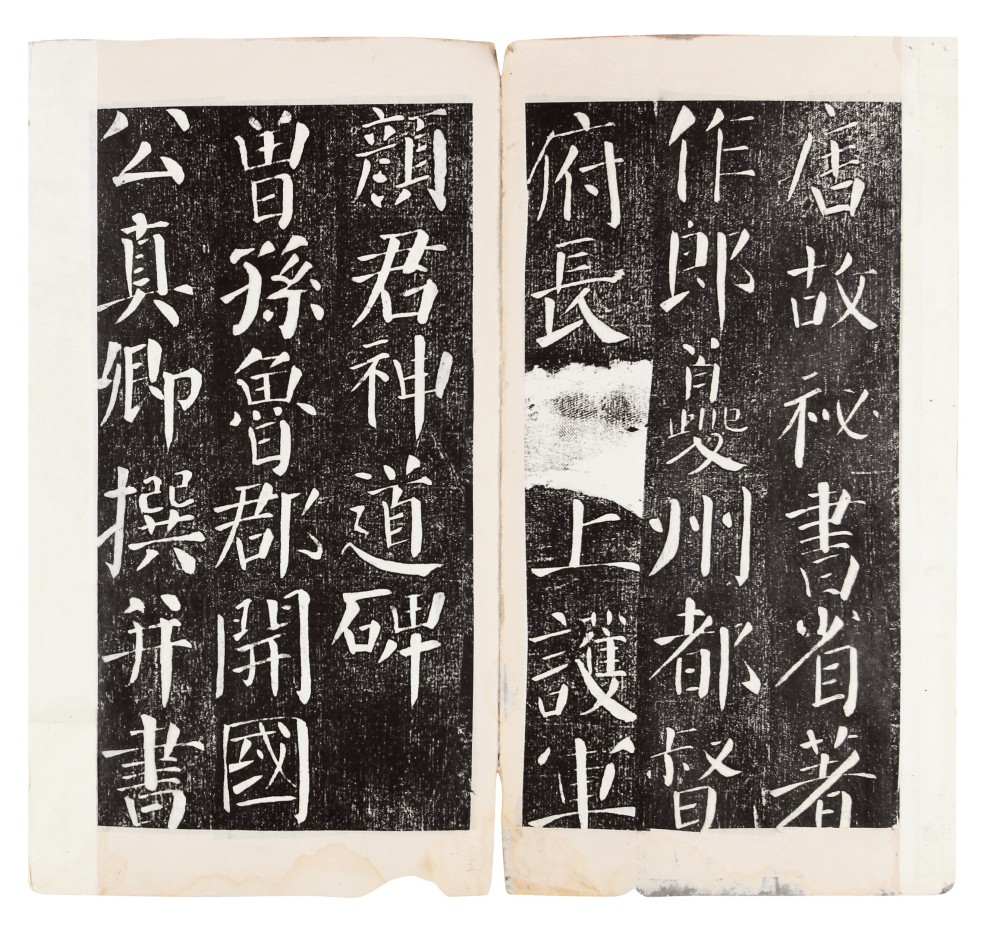 唐故祕書省著
作郎夔州都督
府長上護軍
顏君神道碑
曾孫魯郡開國
公真卿撰并書